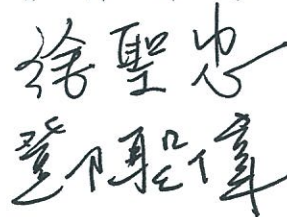 徐聖忠
鄧聖偉